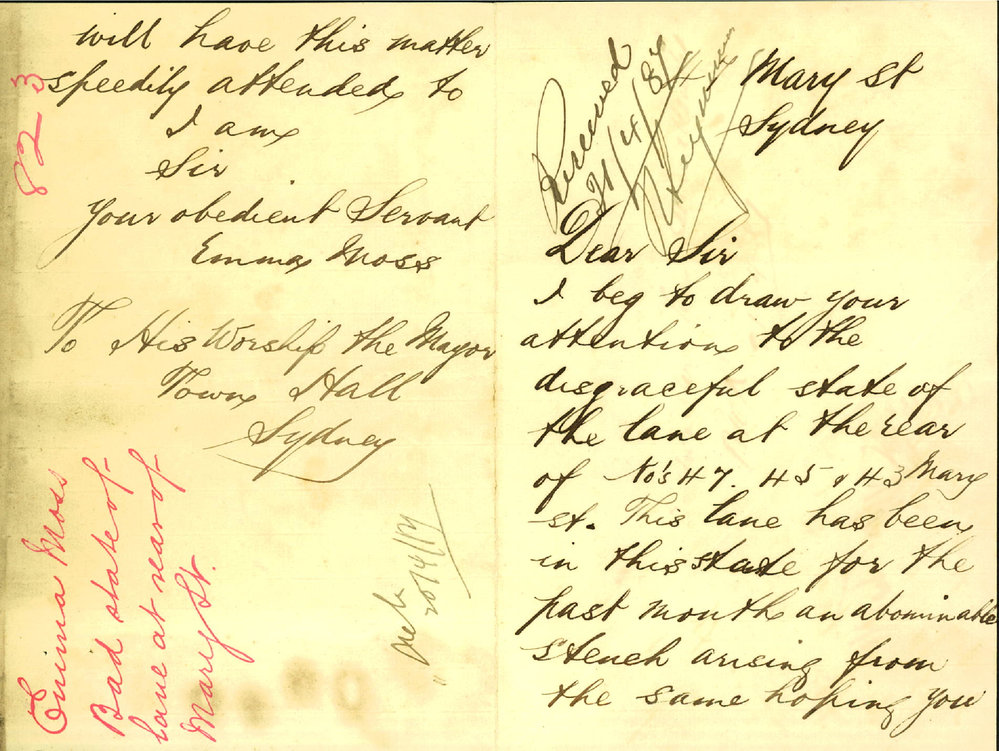 Mary St
Sydney
Received
Dear Sir
I beg to draw your
attention to the
disgraceful state of
the lane at the rear
of No's 47. 45 & 43 Mary
st. This lane has been
in this state for the
past month an abominable
stench arising from
the same hoping you
will have this matter
speedily attended to
I am
Sir
Your obedient Servant
Emma Moss
To His Worship the Mayor
Town Hall
Sydney
823
Emma Moss
Bad state of
lane at rear of
Mary St.